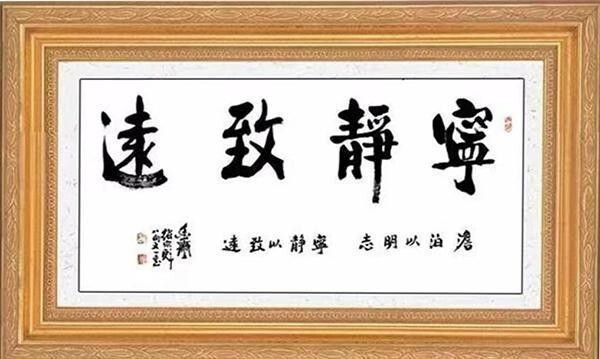 寧靜致遠
澹泊以明志 寧靜以致遠